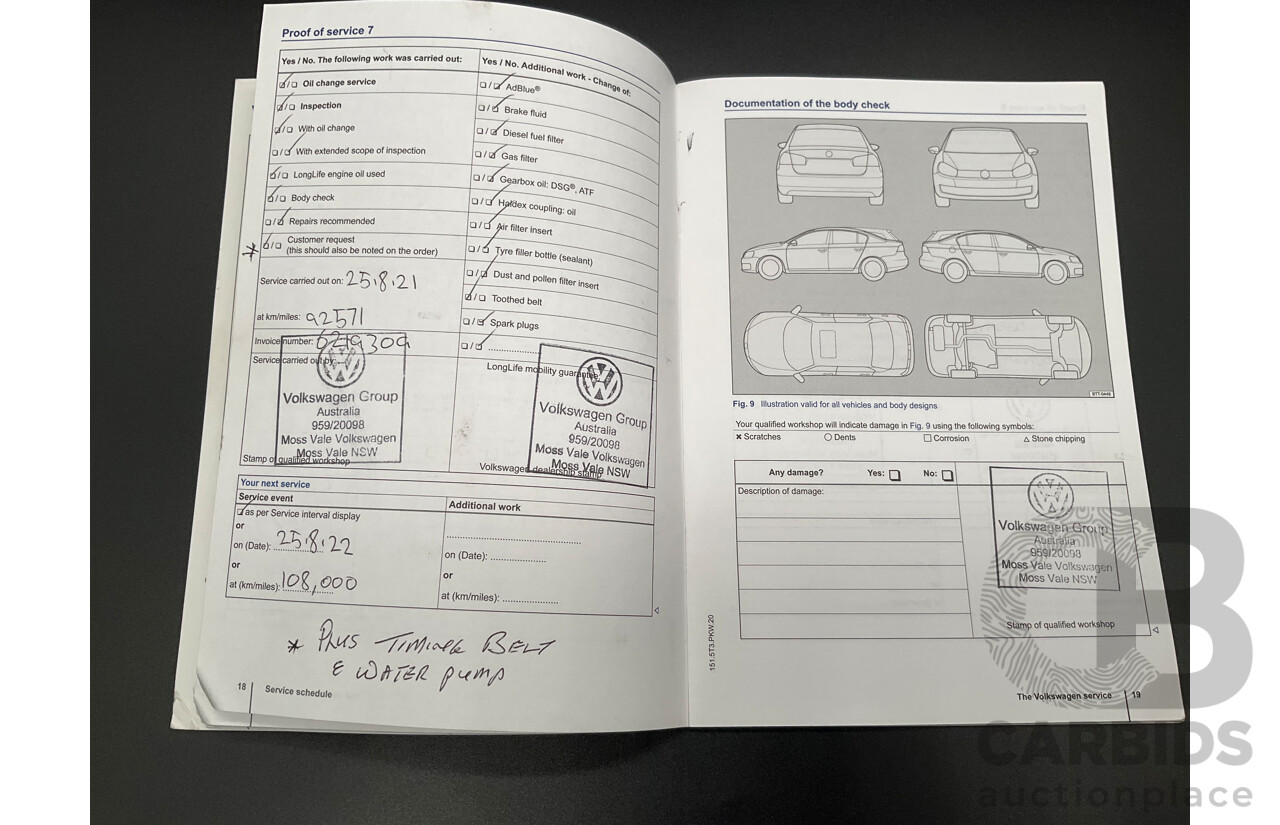 Proof of service 7
Yes / No. The following work was carried out:
☑/☐ Oil change service
☑/☐ Inspection
☑/☐ With oil change
☐/☑ With extended scope of inspection
☑/☐ LongLife engine oil used
☑/☐ Body check
☐/☑ Repairs recommended
☑/☐ Customer request
(this should also be noted on the order)
Service carried out on: 25.8.21
at km/miles: 92571
Invoice number:
Service carried out by:
Volkswagen Group
Australia
959/20098
Moss Vale Volkswagen
Moss Vale NSW
Stamp of qualified workshop
Yes / No. Additional work - Change of:
☐/☑ AdBlue®
☐/☑ Brake fluid
☐/☑ Diesel fuel filter
☐/☑ Gas filter
☐/☑ Gearbox oil: DSG®, ATF
☐/☑ Haldex coupling: oil
☐/☑ Air filter insert
☐/☑ Tyre filler bottle (sealant)
☐/☑ Dust and pollen filter insert
☑/☐ Toothed belt
☐/☑ Spark plugs
☐/☑ ....................
LongLife mobility guarantee
Volkswagen Group
Australia
959/20098
Moss Vale Volkswagen
Moss Vale NSW
Volkswagen dealership stamp
Your next service
Service event
☑ as per Service interval display
or
on (Date): 25.8.22
or
at (km/miles): 108,000
Additional work
on (Date): ....................
or
at (km/miles): ....................
* Plus TIMING BELT
& WATER pump
18 Service schedule
Documentation of the body check
BTT-0448
Fig. 9 Illustration valid for all vehicles and body designs
Your qualified workshop will indicate damage in Fig. 9 using the following symbols:
✖ Scratches ○ Dents □ Corrosion △ Stone chipping
Any damage? Yes: ☐ No: ☐
Description of damage:
Volkswagen Group
Australia
959/20098
Moss Vale Volkswagen
Moss Vale NSW
Stamp of qualified workshop
151.5T3.PKW.20
The Volkswagen service 19
CARBIDS
auctionplace